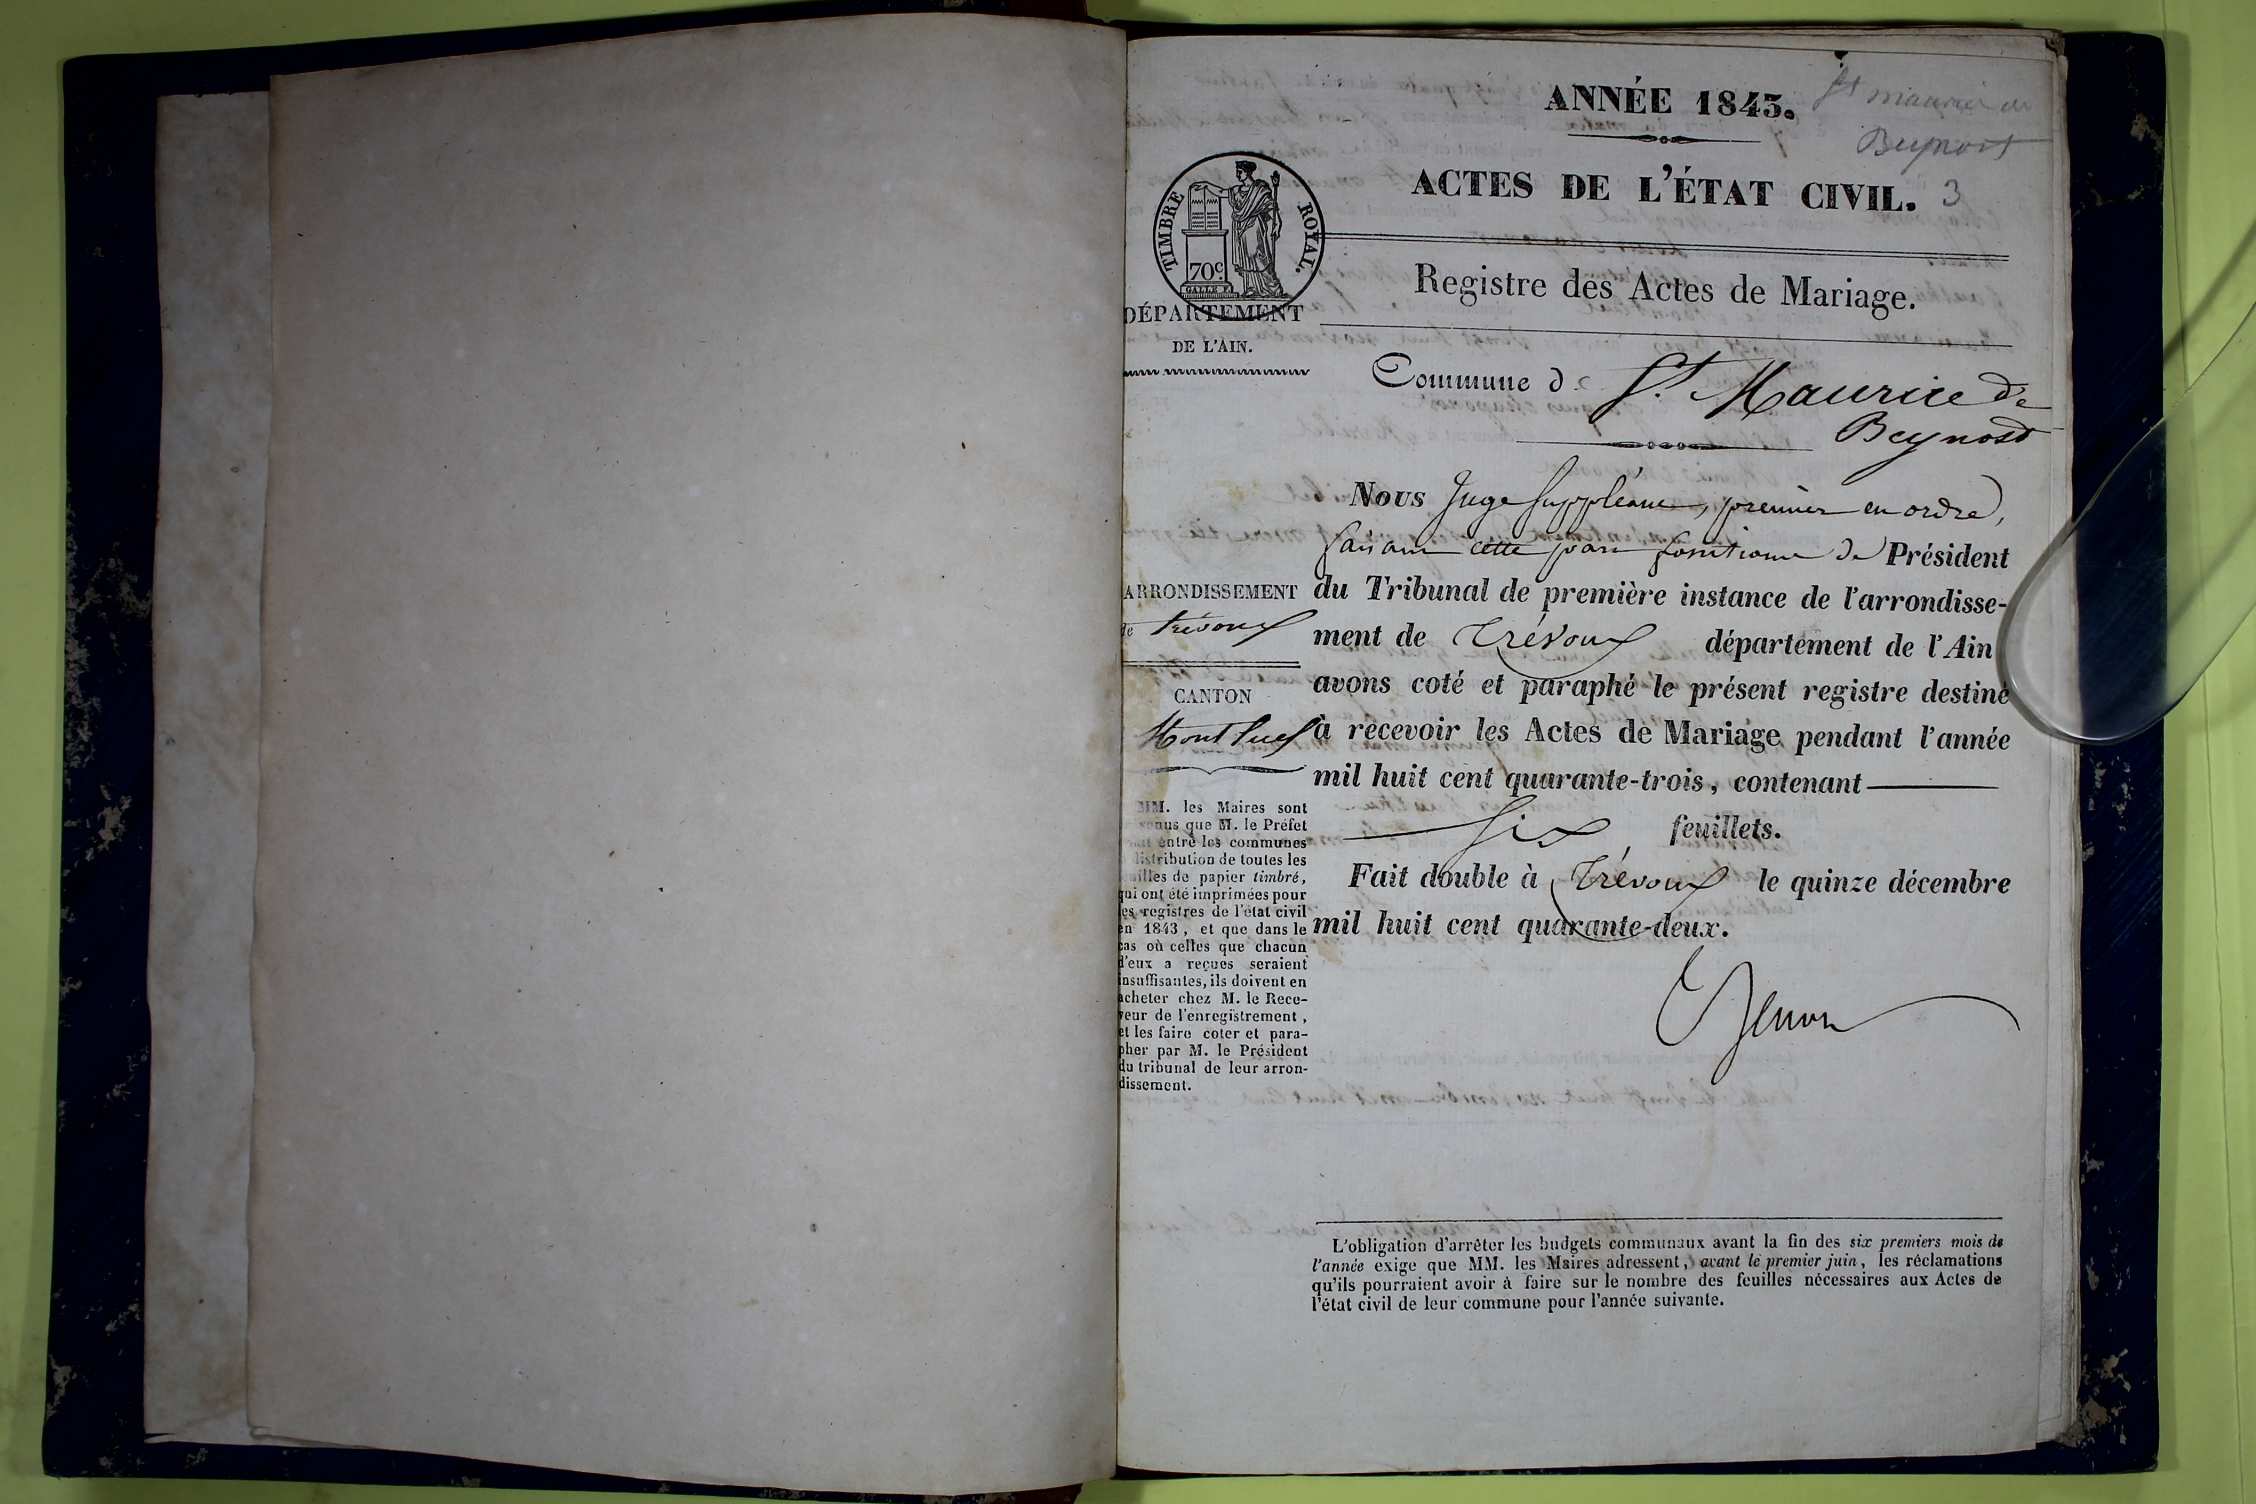 ANNÉE 1843.
St maurice de
Beynost
ACTES DE L'ÉTAT CIVIL. 3
TIMBRE ROYAL.
70c.
GALLE F.
Registre des Actes de Mariage.
DÉPARTEMENT
DE L'AIN.
Commune de St. Maurice de
Beynost
Nous Juge Suppléant, premier en ordre,
faisant cette part fonctions de Président
du Tribunal de première instance de l'arrondisse-
ment de Trévoux département de l'Ain
avons coté et paraphé le présent registre destiné
à recevoir les Actes de Mariage pendant l'année
mil huit cent quarante-trois, contenant
Six feuillets.
Fait double à Trévoux le quinze décembre
mil huit cent quarante-deux.
ARRONDISSEMENT
de Trévoux
CANTON
Montluel
MM. les Maires sont
que M. le Préfet
entre les communes
distribution de toutes les
de papier timbré,
qui ont été imprimées pour
les registres de l'état civil
en 1843, et que dans le
cas où celles que chacun
d'eux a reçues seraient
insuffisantes, ils doivent en
acheter chez M. le Rece-
veur de l'enregistrement,
et les faire coter et para-
pher par M. le Président
du tribunal de leur arron-
dissement.
L'obligation d'arrêter les budgets communaux avant la fin des six premiers mois de
l'année exige que MM. les Maires adressent, avant le premier juin, les réclamations
qu'ils pourraient avoir à faire sur le nombre des feuilles nécessaires aux Actes de
l'état civil de leur commune pour l'année suivante.